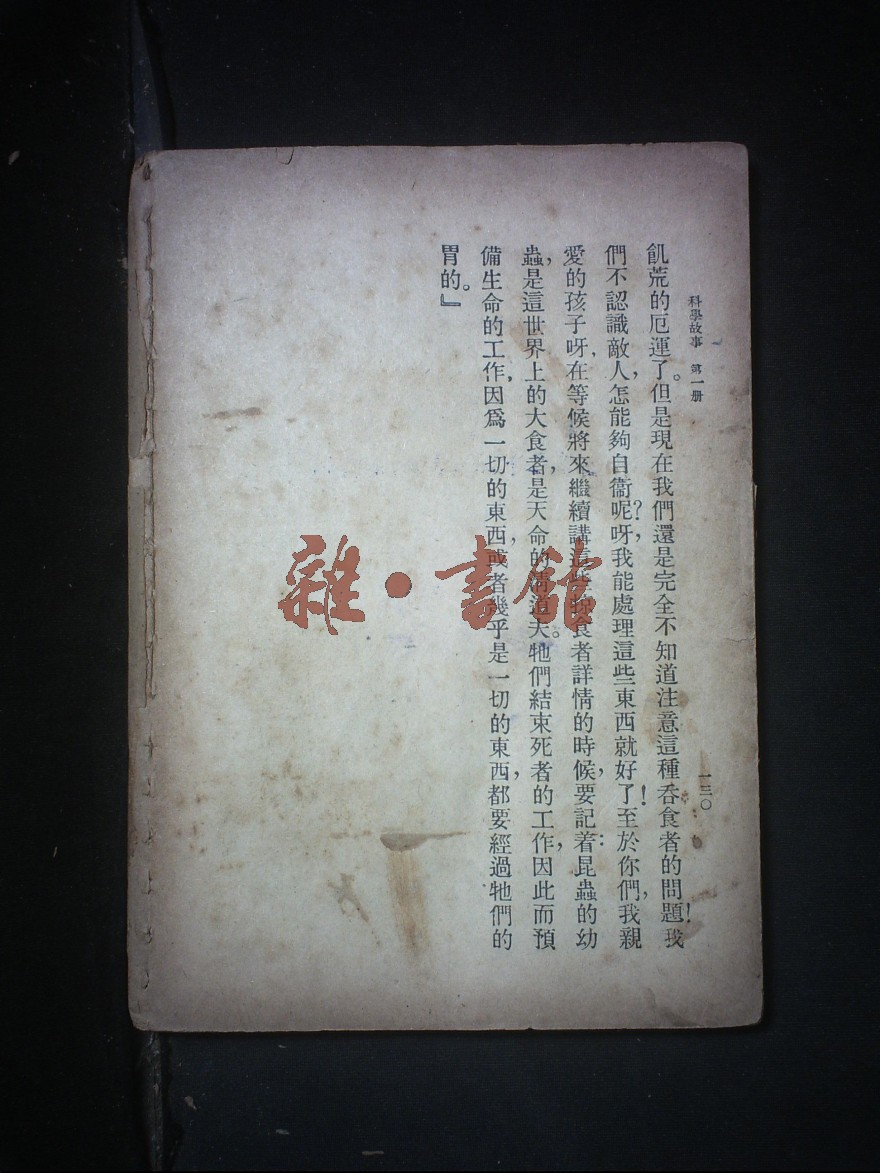 科學故事　第一册
一三〇
飢荒的厄運了。但是現在我們還是完全不知道注意這種吞食者的問題！我
們不認識敵人，怎能夠自衞呢？呀，我能處理這些東西就好了！至於你們，我親
愛的孩子呀，在等候將來繼續講這些掠食者詳情的時候，要記着：昆蟲的幼
蟲，是這世界上的大食者，是天命的清道夫。牠們結束死者的工作，因此而預
備生命的工作，因爲一切的東西，或者幾乎是一切的東西，都要經過牠們的
胃的。』
雜·書館